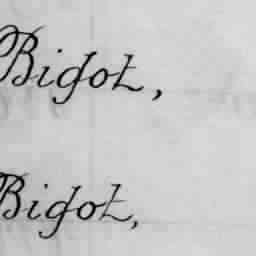 Bigot,
Bigot,